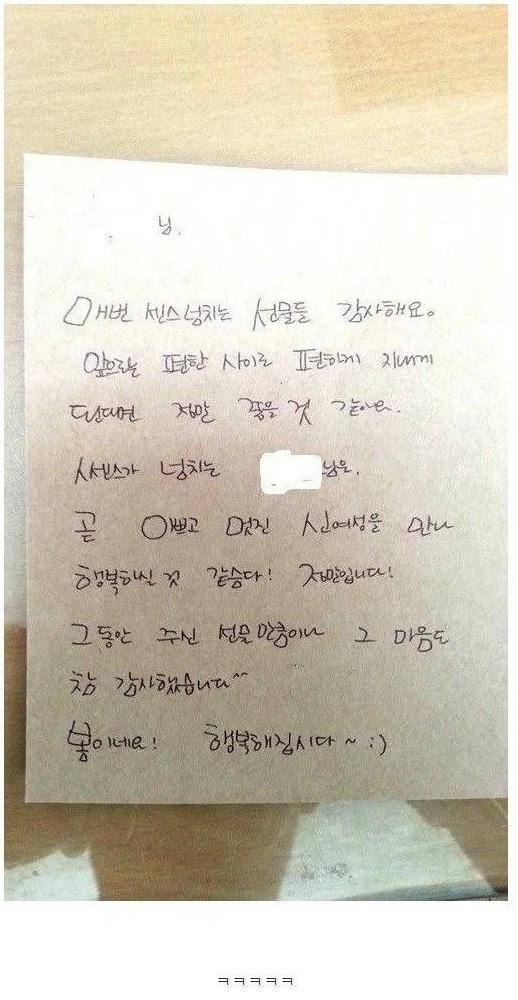 님.
매번 센스넘치는 선물들 감사해요.
앞으로는 편한 사이로 편하게 지내게
된다면 정말 좋을 것 같아요.
센스가 넘치는 님은,
곧 예쁘고 멋진 신여성을 만나
행복하실 것 같슴다! 정말입니다!
그동안 주신 선물만큼이나 그 마음도
참 감사했습니다^^
봄이네요! 행복해집시다~ :)
ㅋㅋㅋㅋㅋ